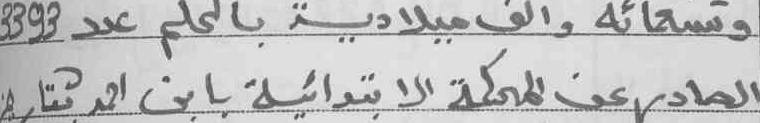 وتسعمائه والف ميلادية بالحكم عدد 3393
الصادر عن المحكمة الابتدائية بابن احمد بتاريخ